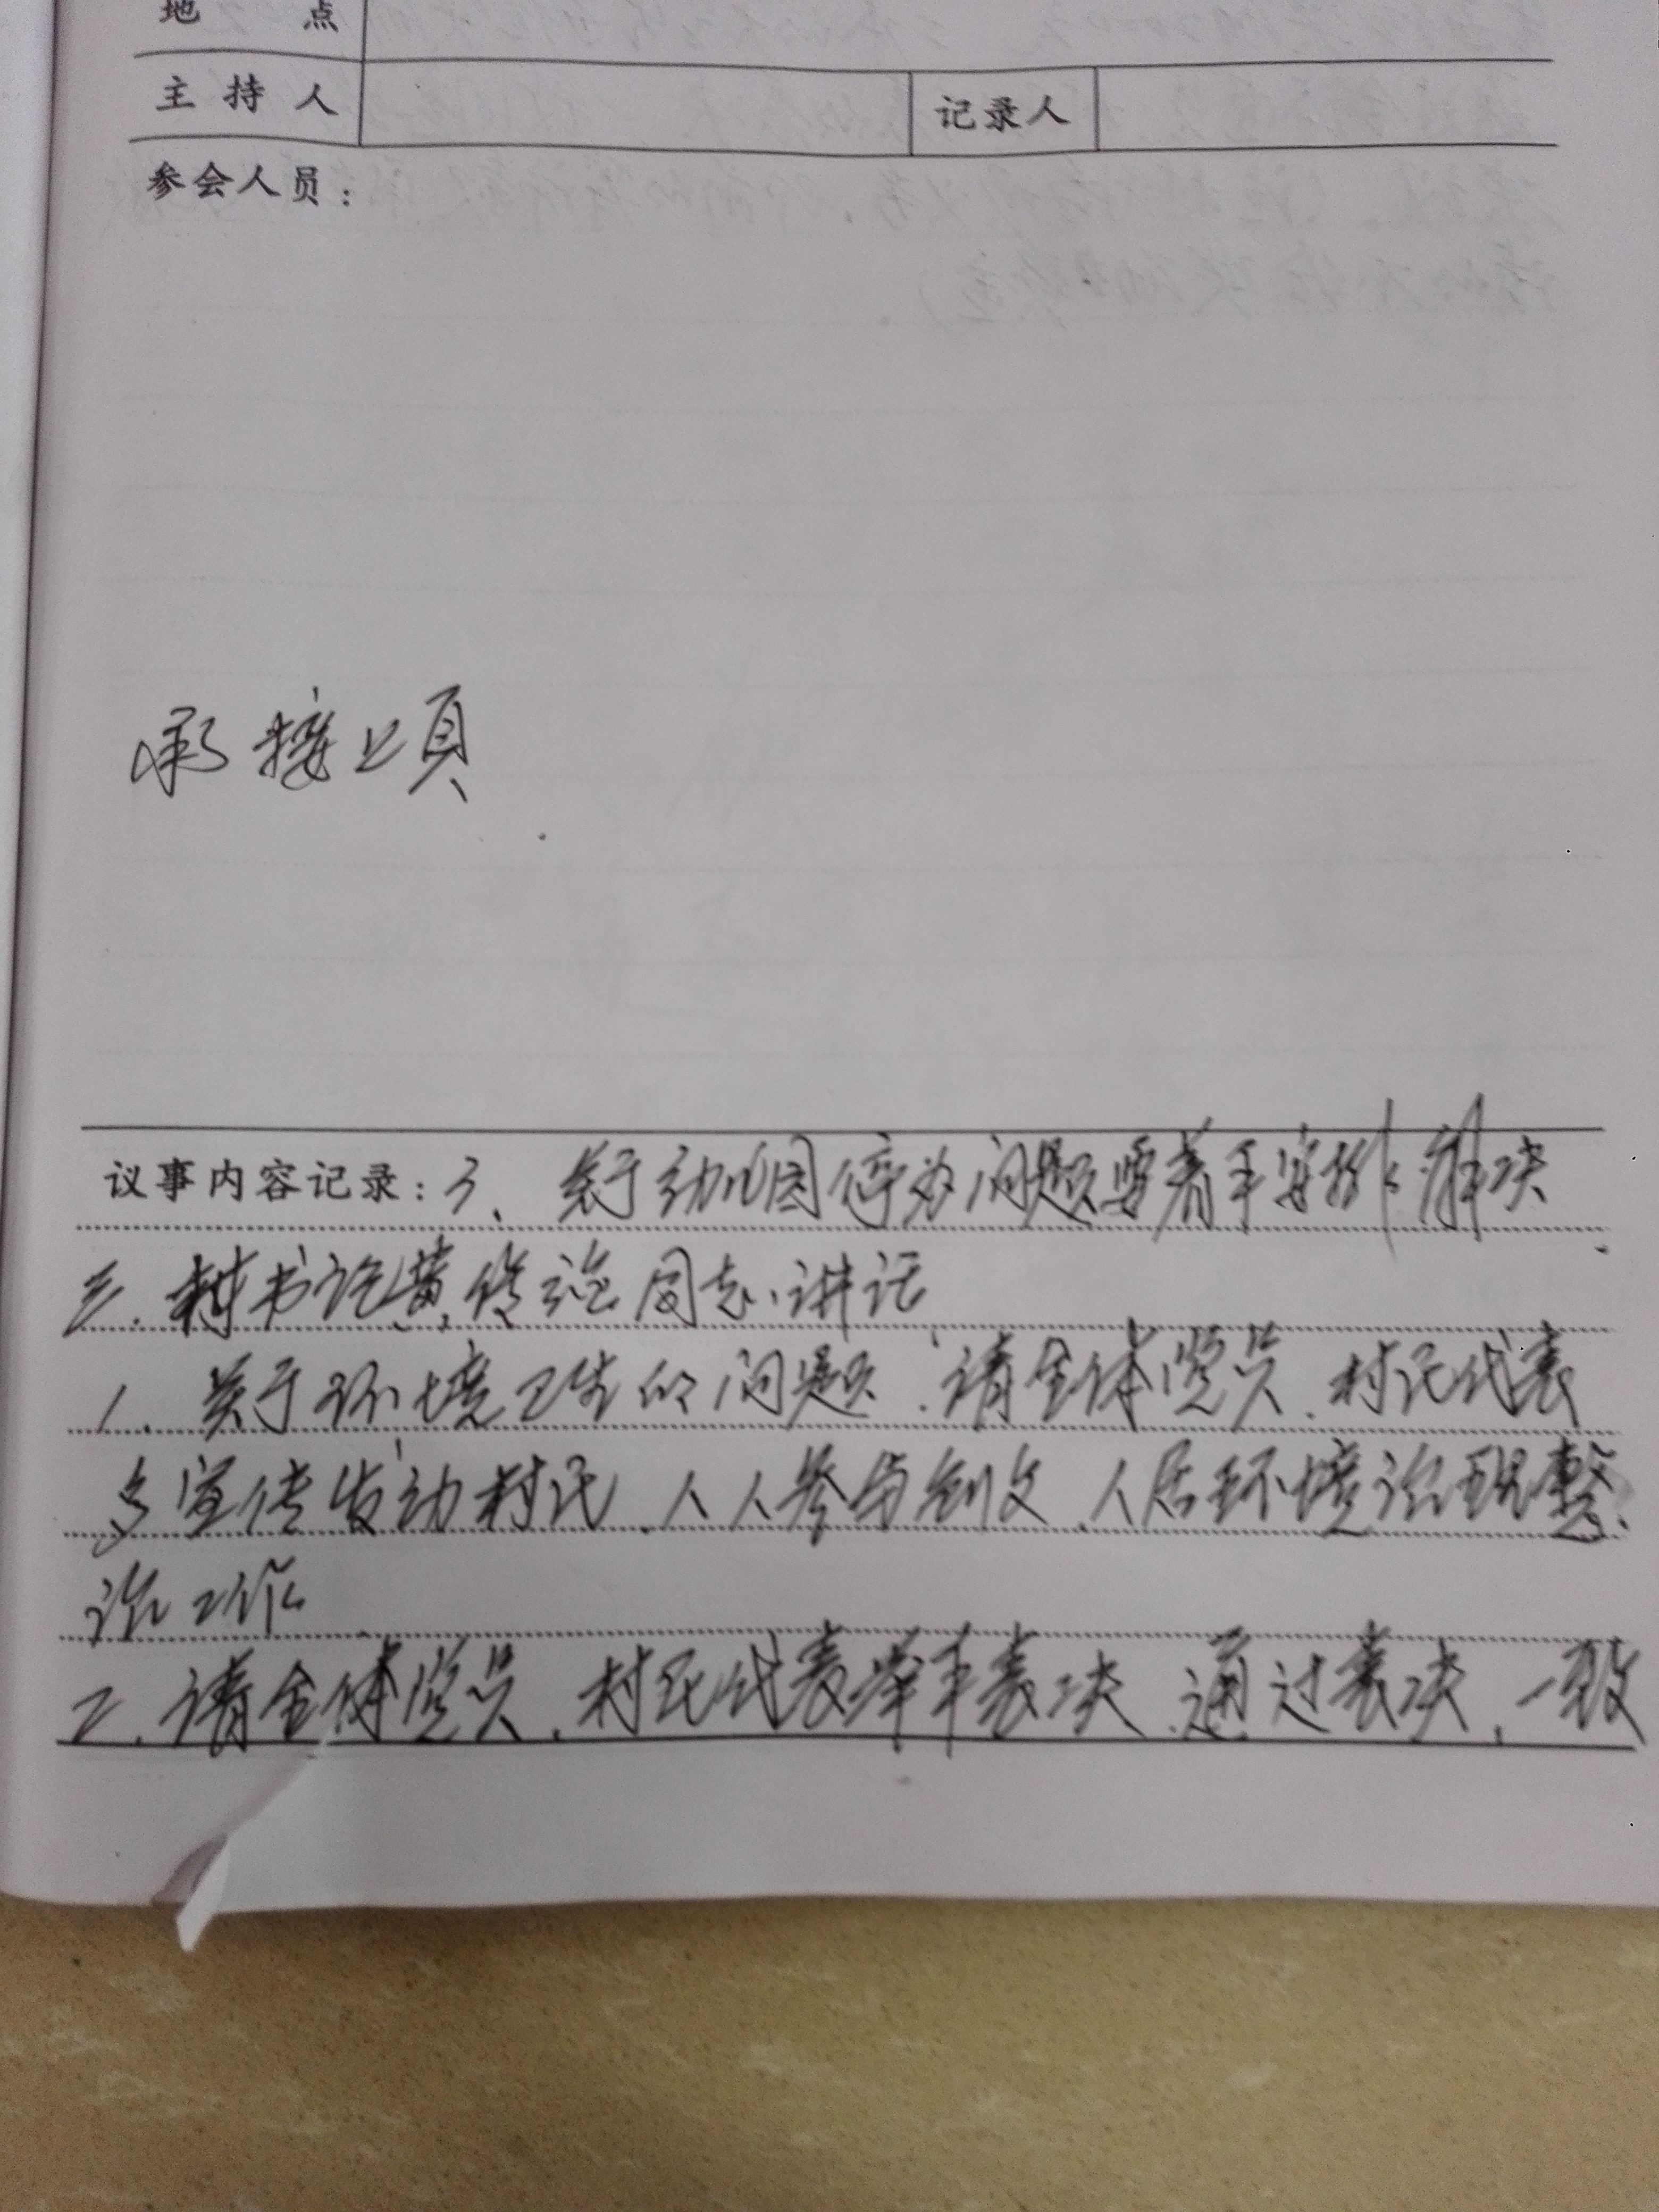 地 点
主持人 记录人
参会人员：
承接上頁
议事内容记录：3、关于幼儿园停办问题要着手安排解决
三、村书记黄传治同志讲话
1、关于环境卫生的问题，请全体党员、村民代表
多宣传发动村民、人人参与创文、人居环境治理整
治工作
2、请全体党员、村民代表举手表决、通过表决、一致